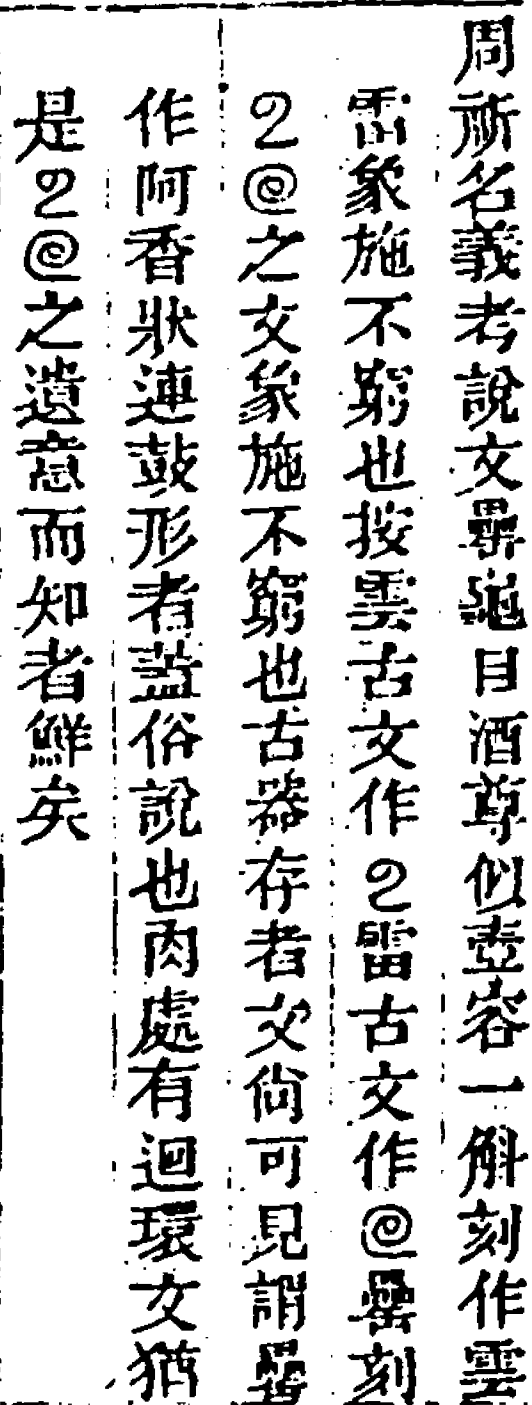 周祈名義考說文罍龜目酒尊似壺容一斛刻作雲
雷象施不窮也按雲古文作雷古文作罍刻
之文象施不窮也古器存者文尚可見謂罍
作阿香狀連鼓形者蓋俗說也肉處有迴環文猶
是之遺意而知者鮮矣